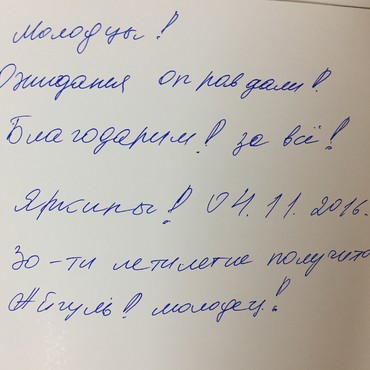 Молодцы!
Ожидания оправдали!
Благодарим! за всё!
Яркины! 04.11.2016.
30-ти летилетие получило
Айгуль! молодец!